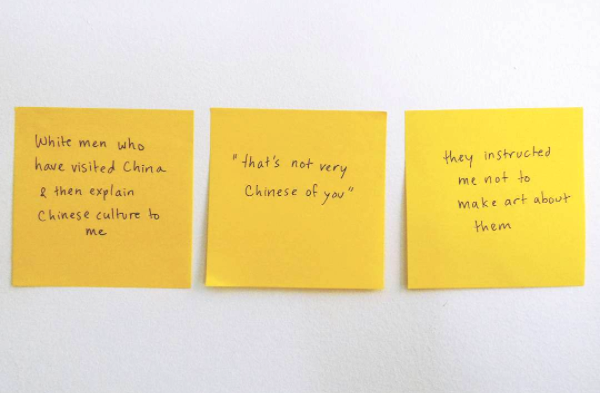 White men who
have visited China
& then explain
Chinese culture to
me
"that's not very
Chinese of you"
they instructed
me not to
make art about
them